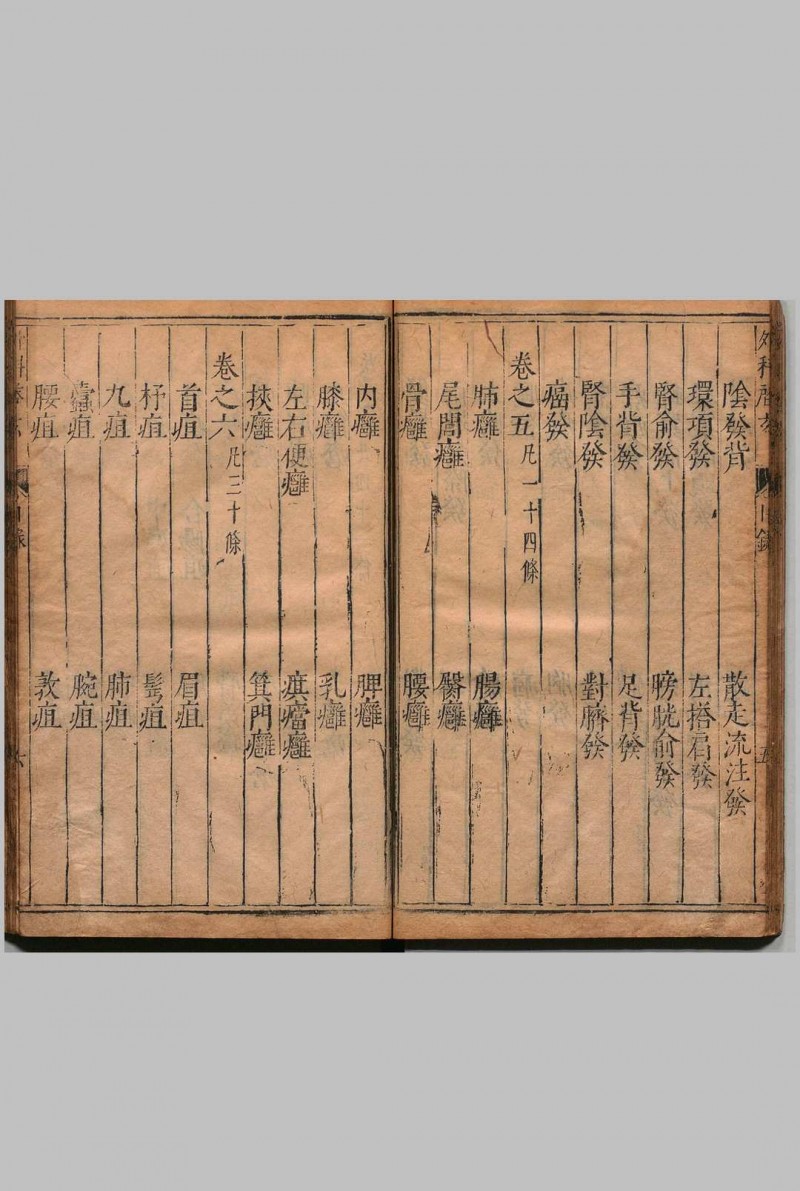 陰發背 散走流注發
環項發 左搭肩發
腎俞發 膀胱俞發
手背發 足背發
腎陰發 對臍發
痞發
卷之五 凡一十四條
肺癰 腸癰
尾閭癰 臀癰
骨癰 腰癰
內癰 脾癰
膝癰 乳癰
左右便癰
挾癰 箕門癰
卷之六 凡三十條
首疽 眉疽
杼疽 髩疽
九疽 肺疽
蠹疽 腕疽
腰疽 敦疽
目錄
五
六